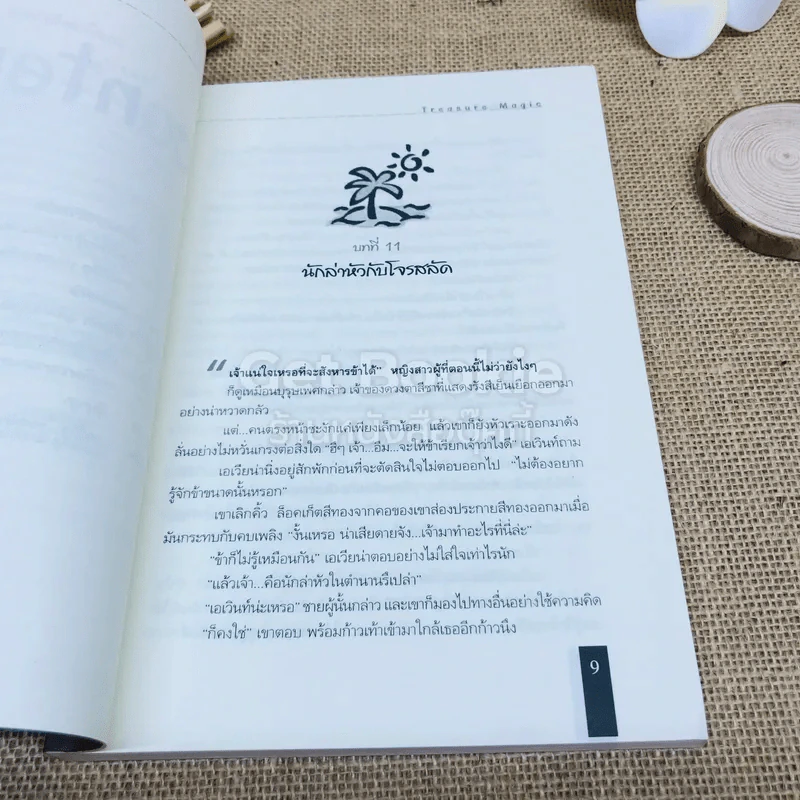 Treasure Magic
บทที่ 11
นักล่าหัวกับโจรสลัด
“เจ้าแน่ใจเหรอที่จะสังหารข้าได้” หญิงสาวผู้ที่ตอนนี้ไม่ว่ายังไงๆ
ก็ดูเหมือนบุรุษเพศกล่าว เจ้าของดวงตาสีชาที่แสดงรังสีเย็นเยือกออกมา
อย่างน่าหวาดกลัว
แต่...คนตรงหน้าชะงักแค่เพียงเล็กน้อย แล้วเขาก็ยังหัวเราะออกมาดัง
ลั่นอย่างไม่หวั่นเกรงต่อสิ่งใด “ฮึๆ เจ้า...อืม...จะให้ข้าเรียกเจ้าว่าไงดี” เอเวินท์ถาม
เอเวียน่านิ่งอยู่สักพักก่อนที่จะตัดสินใจไม่ตอบออกไป “ไม่ต้องอยาก
รู้จักข้าขนาดนั้นหรอก”
เขาเลิกคิ้ว ล็อคเก็ตสีทองจากคอของเขาส่องประกายสีทองออกมาเมื่อ
มันกระทบกับคบเพลิง “งั้นเหรอ น่าเสียดายจัง...เจ้ามาทำอะไรที่นี่ล่ะ”
“ข้าก็ไม่รู้เหมือนกัน” เอเวียน่าตอบอย่างไม่ใส่ใจเท่าไรนัก
“แล้วเจ้า...คือนักล่าหัวในตำนานรึเปล่า”
“เอเวินท์น่ะเหรอ” ชายผู้นั้นกล่าว และเขาก็มองไปทางอื่นอย่างใช้ความคิด
“ก็คงใช่” เขาตอบ พร้อมก้าวเท้าเข้ามาใกล้เธออีกก้าวนึง
9
Get Bookie
ร้านหนังสือบุ๊คกี้